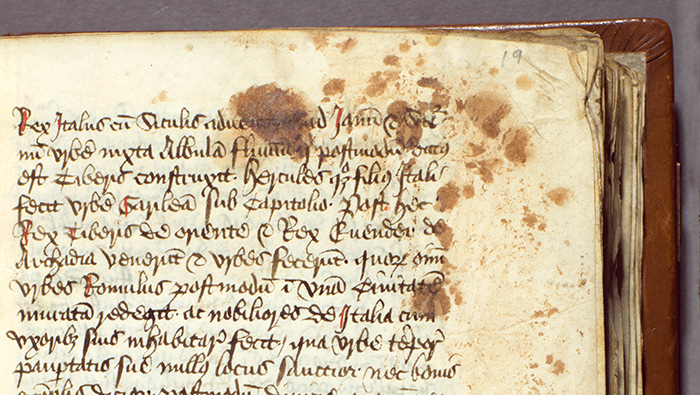 19
Rex Italus cū Siculis adue ad Janū ⁊
vrbē iuxta Albulā fluuiū q postmodū
est Tiberis construxit. Hercules q̄ filius Itali
fecit vrbē sub Capitolio. Post hec
Rex Tiberis de oriente ⁊ Rex Euender de
Archadia venerūt ⁊ vrbes fecerūt. quas om̄
vrbes Romulus postmodū ī vnā Ciuitatē
muratā redegit. ac nobiliores de Italia cum
vxoribꝫ suis inhabitar̄ fecit. qua vrbe tēpor̄
paup̄tatis sue nullus locus sanctior. nec bonis